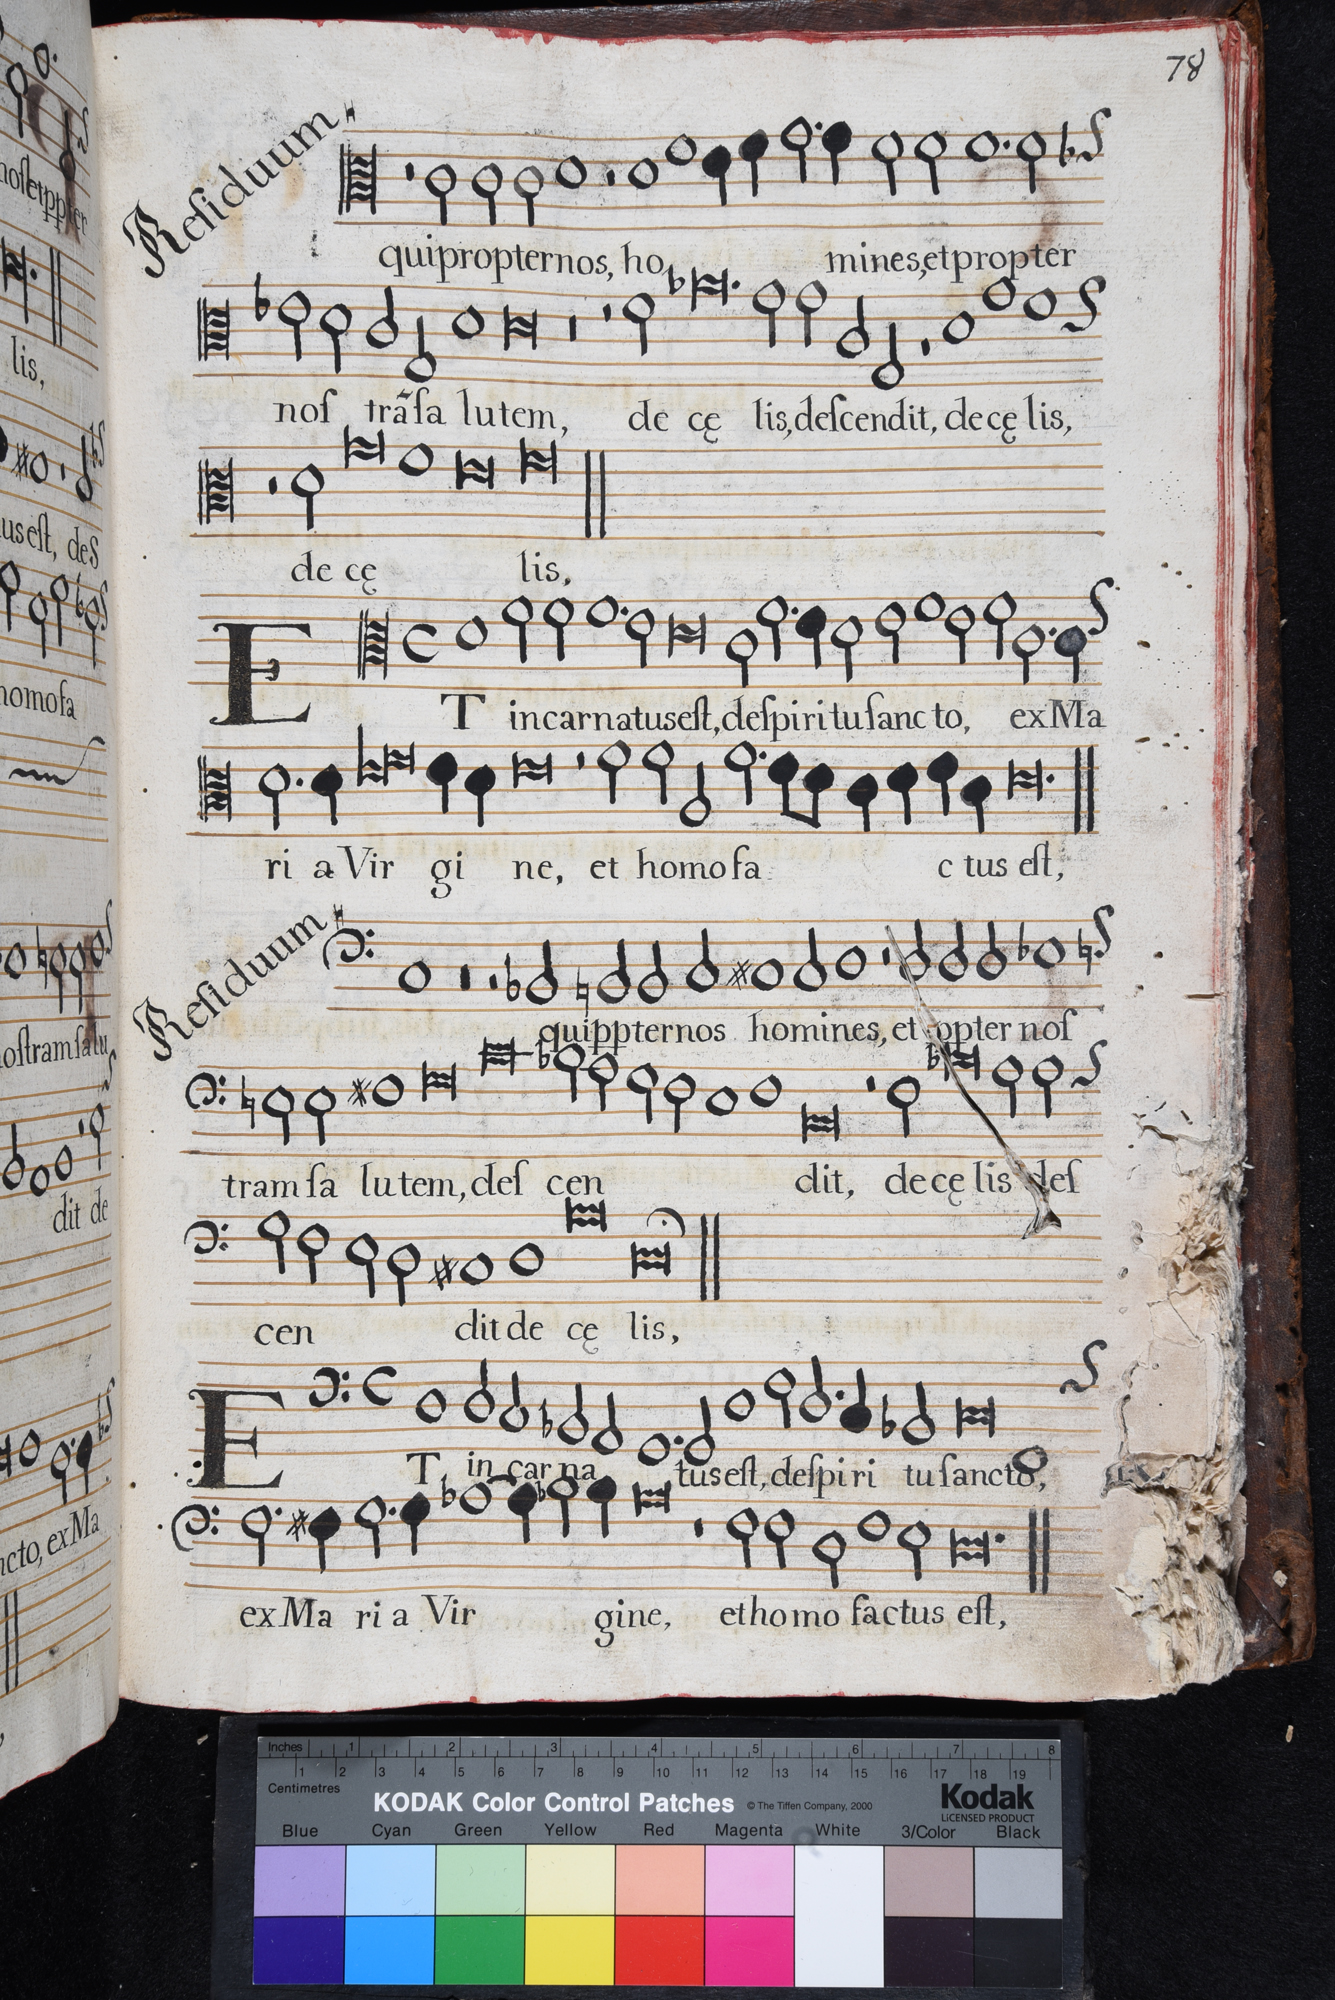 78
Reſiduum
quipropternos, ho mines,etpropter
noſ trãſa lutem, de cę lis,deſcendit, decę lis,
de cę lis,
ET incarnatuseſt,deſpiritu ſancto, exMa
ri a Vir gi ne, et homofa ctus eſt,
Reſiduum
quippternos homines, et ppter noſ
tram ſa lutem, deſ cen dit, decę lis deſ
cen dit de cę lis,
ET in car na tus eſt, deſpiri tu ſancto,
exMa ri a Vir gine, ethomo factus eſt,
lis,
homofa
dit de
ncto, exMa
Inches 1 2 3 4 5 6 7 8
1 2 3 4 5 6 7 8 9 10 11 12 13 14 15 16 17 18 19
Centimetres
KODAK Color Control Patches © The Tiffen Company, 2000 Kodak
LICENSED PRODUCT
Blue Cyan Green Yellow Red Magenta White 3/Color Black